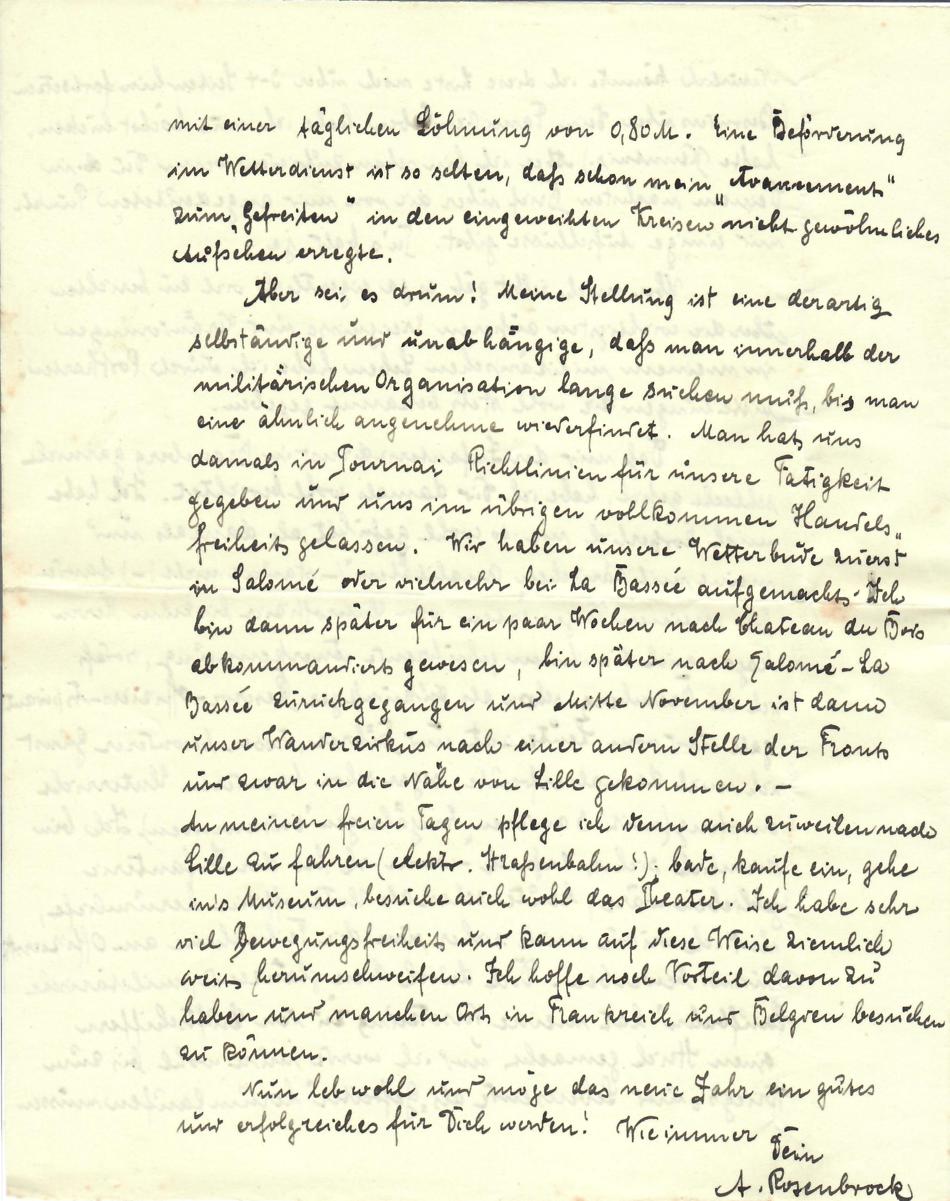 mit einer täglichen Löhnung von 0,80 M. Eine Beförderung
im Wetterdienst ist so selten, daß schon mein „Avancement"
zum „Gefreiten" in den eingeweihten Kreisen nicht gewöhnliches
Aufsehen erregte.
Aber sei es drum! Meine Stellung ist eine derartig
selbständige und unabhängige, daß man innerhalb der
militärischen Organisation lange suchen muß, bis man
eine ähnlich angenehme wiederfindet. Man hat uns
damals in Tournai Richtlinien für unsere Tätigkeit
gegeben und uns im übrigen vollkommen Handels„
freiheit gelassen. Wir haben unsere Wetterbude zuerst
in Salomé oder vielmehr bei La Bassée aufgemacht. Ich
bin dann später für ein paar Wochen nach Chateau du Bois
abkommandiert gewesen, bin später nach Salomé-La
Bassée zurückgegangen und Mitte November ist dann
unser Wanderzirkus nach einer andern Stelle der Front
und zwar in die Nähe von Lille gekommen. –
An meinen freien Tagen pflege ich denn auch zuweilen nach
Lille zu fahren (elektr. Straßenbahn!); bade, kaufe ein, gehe
in's Museum, besuche auch wohl das Theater. Ich habe sehr
viel Bewegungsfreiheit und kann auf diese Weise ziemlich
weit herumschweifen. Ich hoffe noch Vorteil davon zu
haben und manchen Ort in Frankreich und Belgien besuchen
zu können.
Nun leb wohl und möge das neue Jahr ein gutes
und erfolgreiches für Dich werden! Wie immer
Dein
A. Rosenbrock